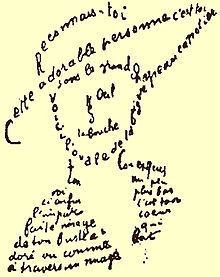 Reconnais-toi
Cette adorable personne c'est toi
Sous le grand chapeau canotier
Oeil
La bouche
Voici l'ovale de ta figure
Ton
cou exquis
Voi
ci enfin
l'impar
faite image
de ton buste a
doré vu comme
à travers un nuage
un peu
plus bas
c'est ton
coeur
qui
bat